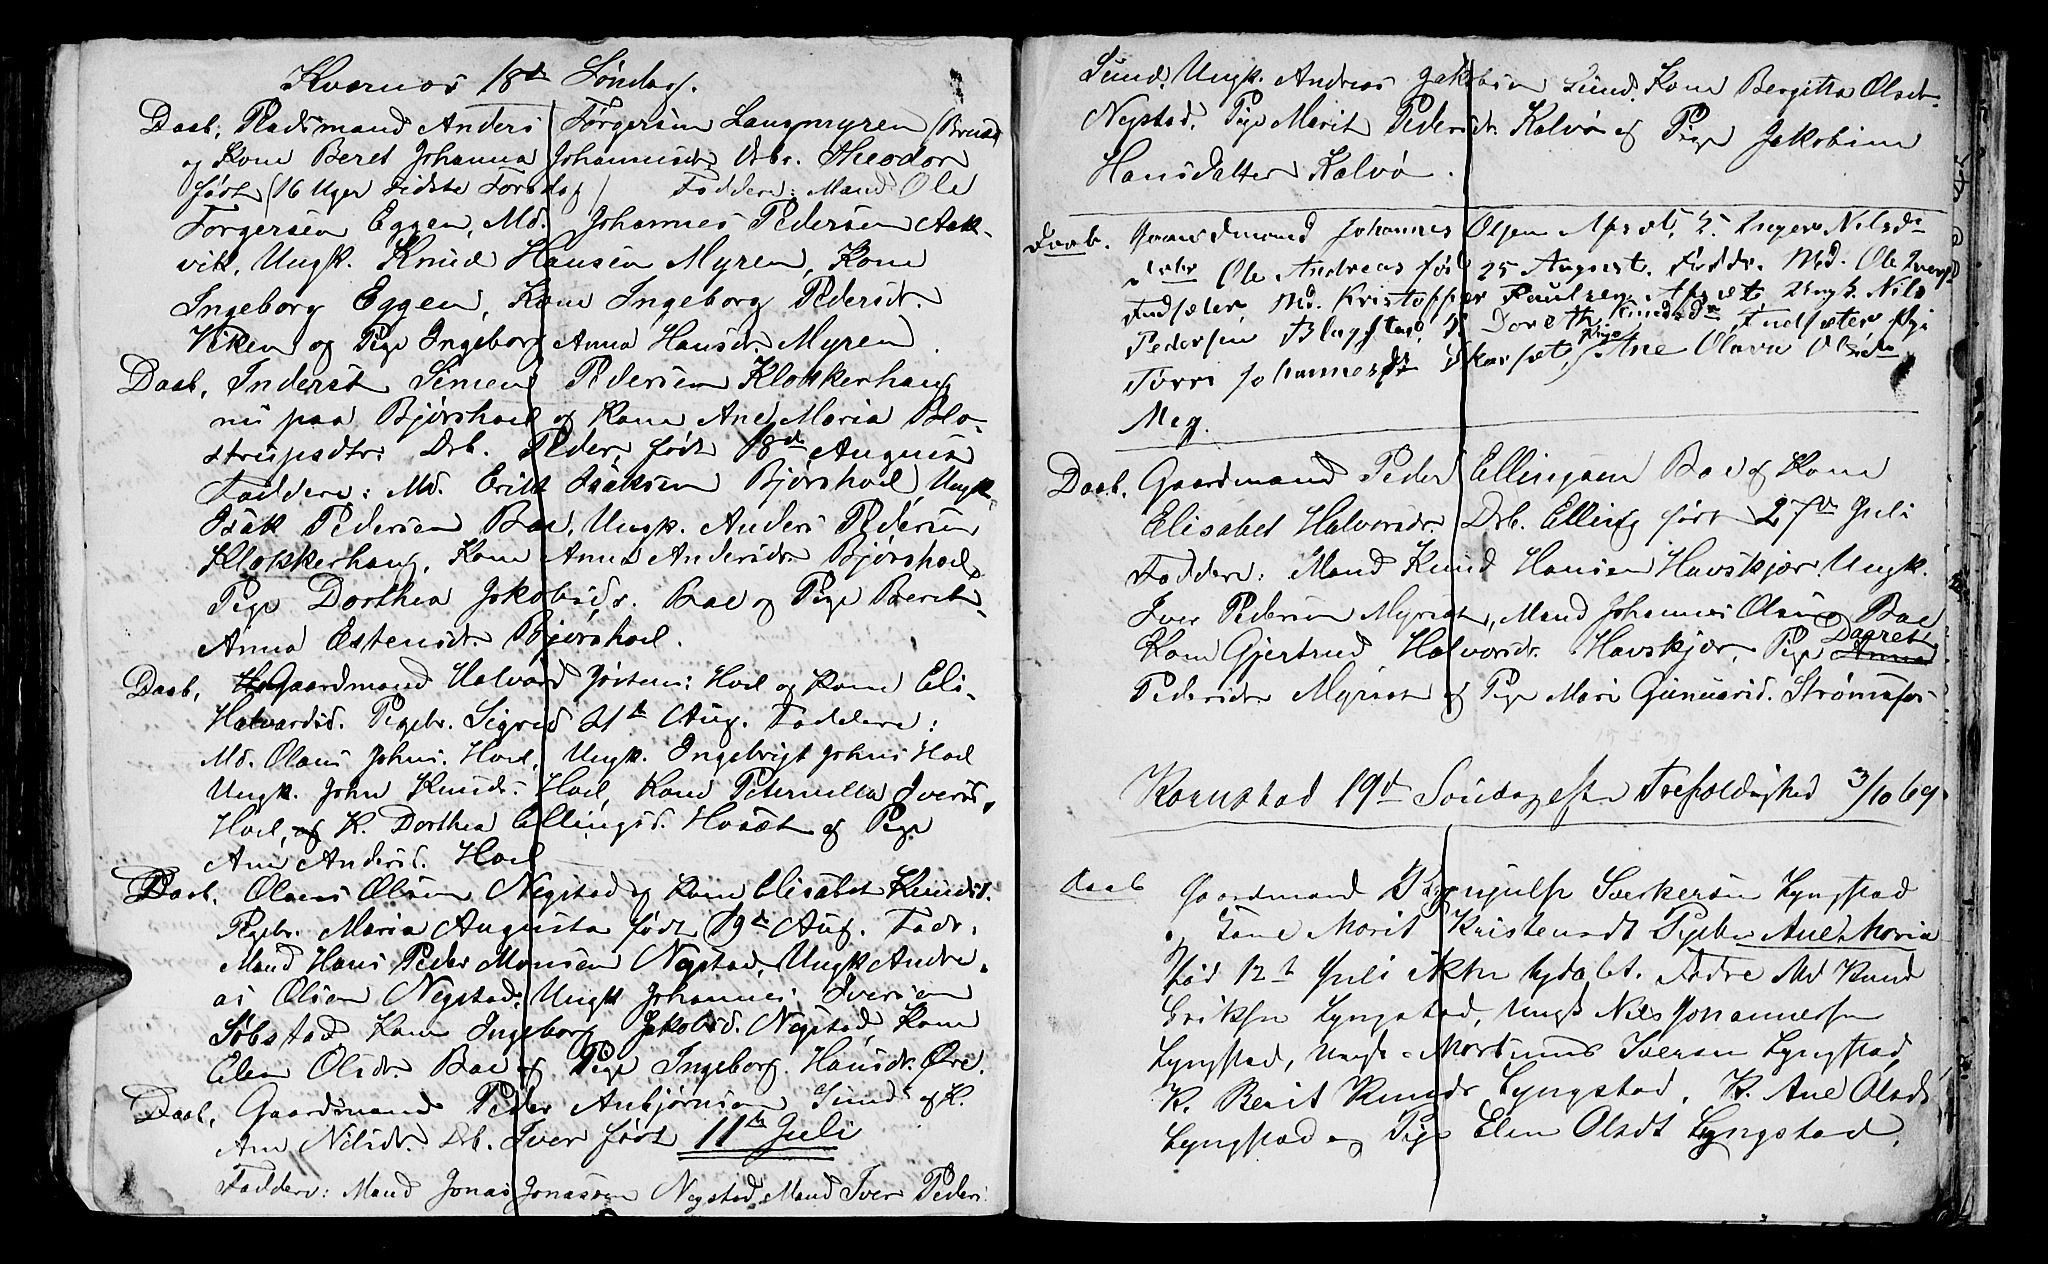 Kvernæs 18de Søndag.
Daab. Pladsmand Anders Torgersen Langmyren (Bruset)
og Kone Beret Johanna Johannesdr. Drbr. Theodor
født (16 Uger sidste Torsdag) Faddere: Mand Ole
Torgersen Eggen, Md. Johannes Pedersen Aak-
vik, Ungk. Knud Hansen Myren, Kone
Ingeborg Eggen, Kone Ingeborg Pedersdr.
Viken og Pige Ingeborg Anna Hansdr. Myren.
Daab. Inderst Simen Pedersen Klokkerhaug
nu paa Bjørshoel og Kone Ane Maria Blo-
strupsdtr: Drb. Peder født 18de August
Faddere: Md. Erik Isaksen Bjørshoel, Ungk.
Isak Pedersen Boe, Ungk. Anders Pedersen
Klokkerhaug, Kone Anna Andersdr. Bjørshoel,
Pige Dorthea Jakobsdr. Boe og Pige Bereth
Anna Estensdr. Bjørshoel.
Daab. Gaardmand Halvard Jostens: Hoel og Kone Eli
Halvardsd. Pigebr. Sigrid 21de Aug. Faddere:
Md. Olaus Johns. Hoel, Ungk. Ingebrigt Johns Hoel
Ungk. John Knuds. Hoel, Kone Peternilla Iversd.
Hoel, K. Dorthea Ellingsd. Hosæt og Pige
Ane Andersd. Hoel
Daab. Olaus Olsen Negstad og Kone Elisabet Knudsd.
Pigebr. Maria Augusta født 19de Aug. Fadr:
Mand Hans Peder Monsen Negstad, Ungk Andre-
as Olsen Negstad, Ungk Johannes Iversen
Søbstad, Kone Ingeborg Jakobsd. Negstad, Kone
Elen Olsdr. Boe og Pige Ingeborg Hansdr. Øre.
Daab. Gaardmand Peder Anbjørnsen Sund og K.
Ane Nilsdr. Drb. Iver født 11te Juli
Faddere: Mand Jonas Jonassen Negstad, Mand Iver Peders
Sund, Ungk. Andreas Jakobsen Sund, Kone Bergitta Olsdr.
Negstad, Pige Marit Pedersdr. Kalvø og Pige Jakobine
Hansdatter Kalvø.
Daab. Gaardmand Johannes Olsen Apsæt, K. Inger Nilsdr
Ole Andreas fød 25 August. Faddr. Md. Ole Iversen
Fudsæter Md. Kristopper Paulsen Apsæt, Ungk. Nils
Pedersen Blagstad, K Doroth Knudsdr Fudsæter Pige
Torri Johannesdr Skarsæt, Pige Ane Olava Olsdr
Meg.
Daab. Gaardmand Peder Ellingsen Boe og Kone
Elisabet Halvorsdr. Drb. Elling født 27de Juli
Faddere: Mand Knud Hansen Havskjær. Ungk.
Iver Pedersen Myrset, Mand Johannes Olsen Boe
Kone Gjertrud Halvorsdr. Havskjær, Pige Daaret
Pedersdr Myrset og Pige Mari Gunnarsd. Strømsfor
Kornstad 19de Søndag efter Trefoldighed 3/10 69
Daab Gaardmand Sverkersen Lyngstad
og Kone Marit Kristensdt Pigebr Ane Maria
Fød 12te Juli Fadre Md Knud
Eriksen Lyngstad, Ungk Nils Johannessen
Lyngstad, Ungk. Mortinus Iversen Lyngstad,
K. Berit Knudsdr Lyngstad, K. Ane Olsdr
Lyngstad og Pige Elen Olsdt Lyngstad.